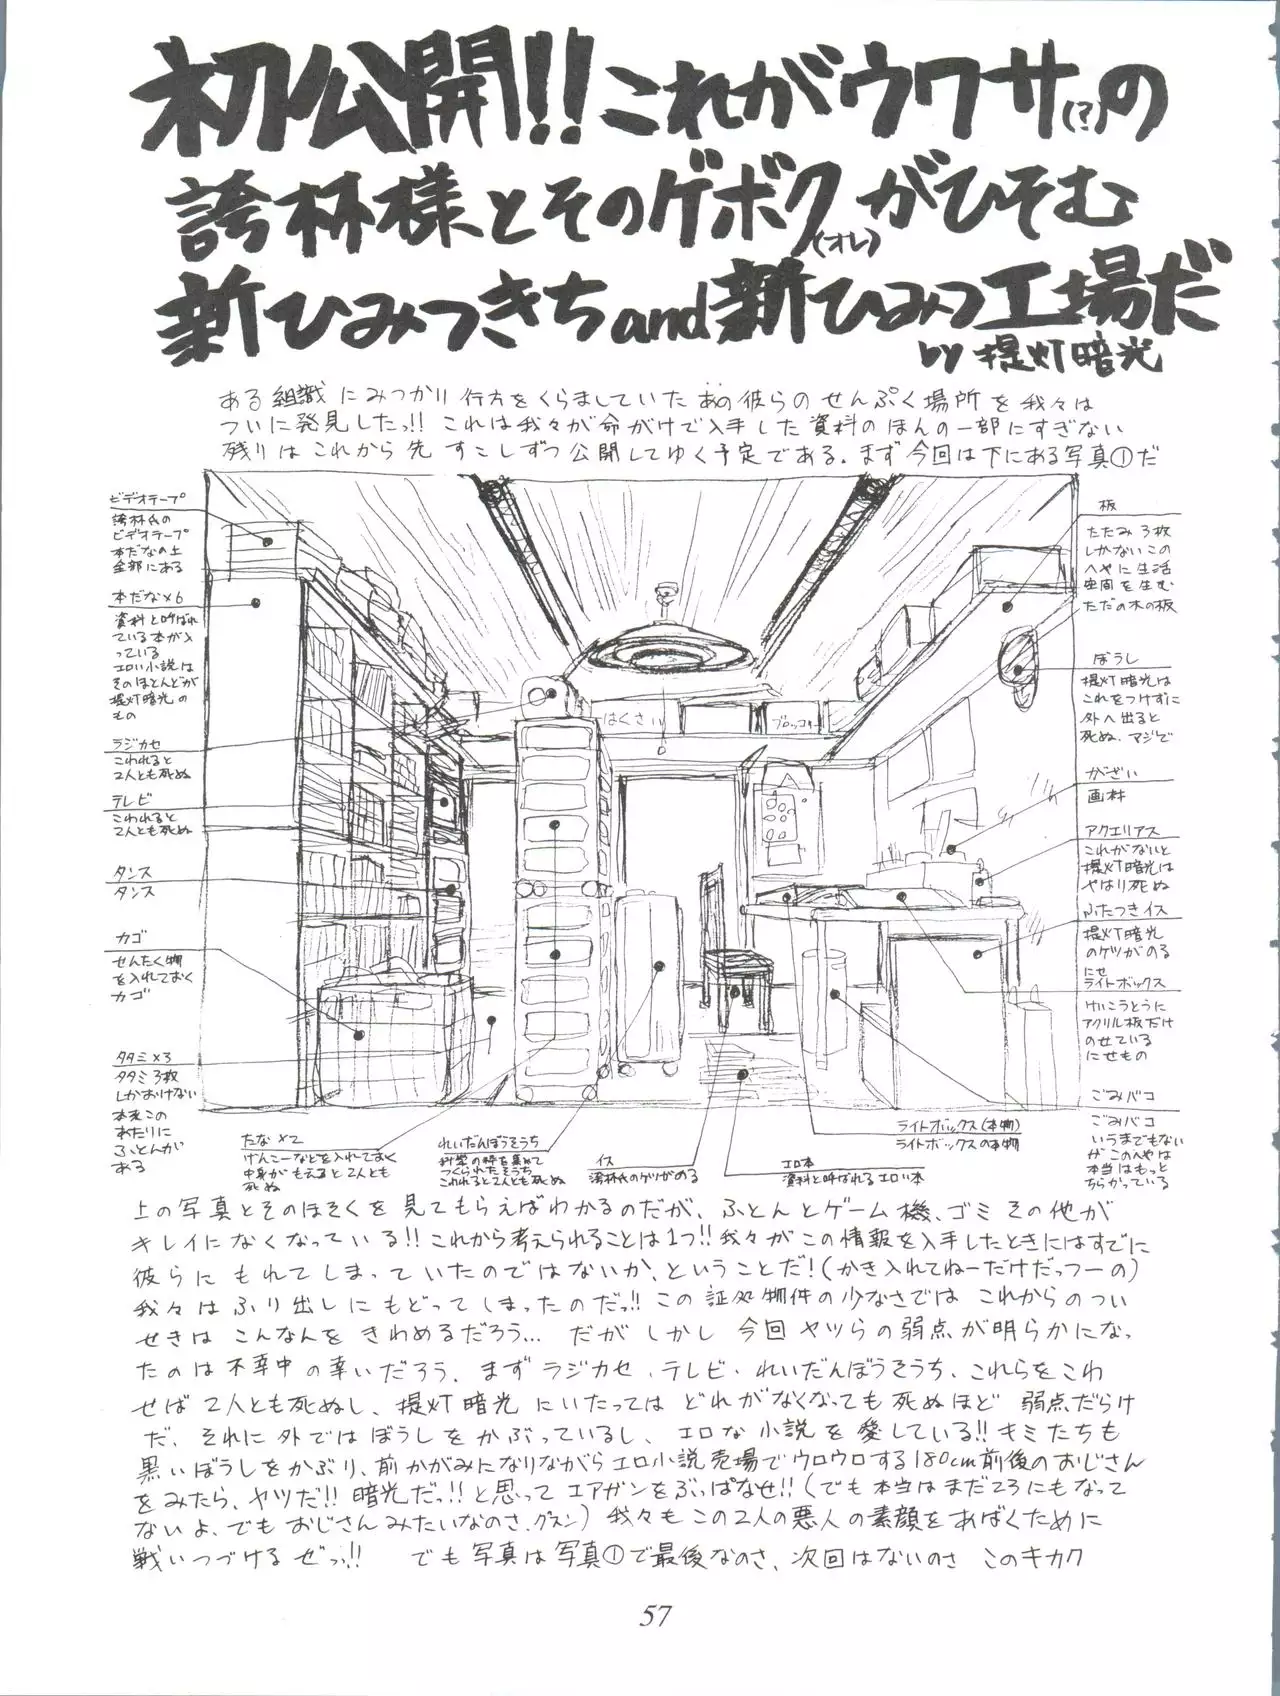 初公開!!これがウワサ(?)の
誇林様とそのゲボク(オレ)がひそむ
新ひみつきちand新ひみつ工場だ
by 提灯暗光
ある組織にみつかり行方をくらましていたあの彼らのせんぷく場所を我々は
ついに発見したっ!! これは我々が命がけで入手した資料のほんの一部にすぎない
残りはこれから先 すこしずつ公開してゆく予定である。まず今回は下にある写真①だ
ビデオテープ
誇林氏の
ビデオテープ
本だなの上
全部にある
本だな×6
資料と呼ばれ
ている本が入
っている
エロい小説は
そのほとんどが
提灯暗光の
もの
ラジカセ
こわれると
2人とも死ぬ
テレビ
こわれると
2人とも死ぬ
タンス
タンス
カゴ
せんたく物
を入れておく
カゴ
タタミ×3
タタミ3枚
しかおけない
本来この
あたりに
ふとんが
ある
はくさい
ブロッコリー
板
たたみ3枚
しかないこの
へやに生活
空間を生む
ただの木の板
ぼうし
提灯暗光は
これをつけずに
外へ出ると
死ぬ、マジで
がざい
画材
アクエリアス
これがないと
提灯暗光は
やはり死ぬ
ふたつきイス
提灯暗光
のケツがのる
にせ
ライトボックス
けいこうとうに
アクリル板だけ
のせている
にせもの
ごみバコ
ごみバコ
いうまでもない
がこのへやは
本当はもっと
ちらかっている
たな×2
げんこーなどを入れておく
中身がもえると2人とも
死ぬ
れいだんぼうそうち
科学の粋を集めて
つくられたそうち
これわれると2人とも死ぬ
イス
誇林氏のケツがのる
エロ本
資料と呼ばれるエロい本
ライトボックス(本物)
ライトボックスの本物
上の写真とそのほそくを見てもらえばわかるのだが、ふとんとゲーム機、ゴミその他が
キレイになくなっている!! これから考えられることは1つ!! 我々がこの情報を入手したときにはすでに
彼らにもれてしまっていたのではないか、ということだ!(かき入れてねーだけだっつーの)
我々はふり出しにもどってしまったのだっ!! この証処物件の少なさではこれからのつい
せきはこんなんをきわめるだろう… だがしかし今回ヤツらの弱点が明らかになっ
たのは不幸中の幸いだろう。まずラジカセ、テレビ、れいだんぼうそうち、これらをこわ
せば2人とも死ぬし、提灯暗光にいたってはどれがなくなっても死ぬほど 弱点だらけ
だ、それに外ではぼうしをかぶっているし、エロな小説を愛している!! キミたちも
黒いぼうしをかぶり、前かがみになりながらエロ小説売場でウロウロする180cm前後のおじさん
をみたら、ヤツだ!! 暗光だっ!! と思ってエアガンをぶっぱなせ!!(でも本当はまだ23にもなって
ないよ、でもおじさんみたいなのさ、グスン)我々もこの2人の悪人の素顔をあばくために
戦いつづけるぜっ!! でも写真は写真①で最後なのさ、次回はないのさ このキカク
57